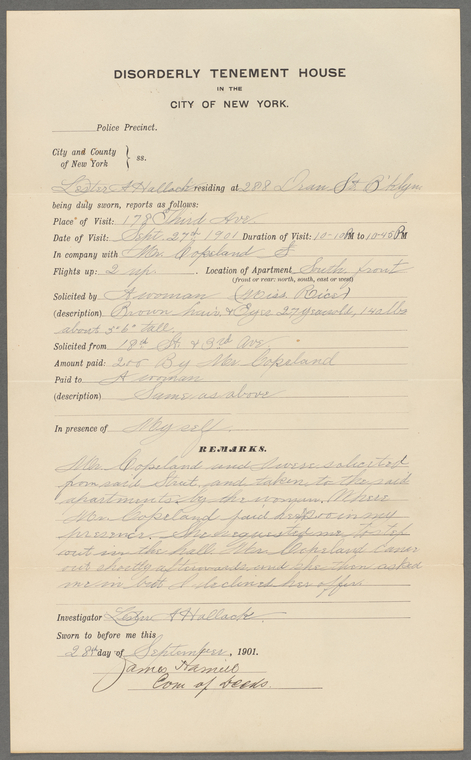 DISORDERLY TENEMENT HOUSE
IN THE
CITY OF NEW YORK.
Police Precinct.
City and County
of New York } ss.
Lester A Hallack residing at 288 Dean St B'klyn
being duly sworn, reports as follows:
Place of Visit: 178 Third Ave
Date of Visit: Sept. 27th 1901 Duration of Visit: 10-10 PM to 10-45 PM
In company with Mr Copeland S
Flights up: 2 up. Location of Apartment South front
(front or rear: north, south, east or west)
Solicited by A woman (Miss Rice)
(description) Brown hair & Eyes 27 years old, 140 lbs
about 5"6" tall.
Solicited from 18th St. & 3rd Ave.
Amount paid: 2.00 By Mr Copeland
Paid to A woman
(description) Same as above
In presence of My self.
REMARKS.
Mr. Copeland and I were solicited
from said Street, and taken to the said
apartments by the woman. Where
Mr Copeland paid her 2.00 in my
presence. She requested me to step
out in the hall. Mr Copeland came
out shortly afterwards and she then asked
me in but I declined her offer
Investigator Lester A Hallack
Sworn to before me this
28th day of September, 1901.
James Hamill
Com of Deeds.